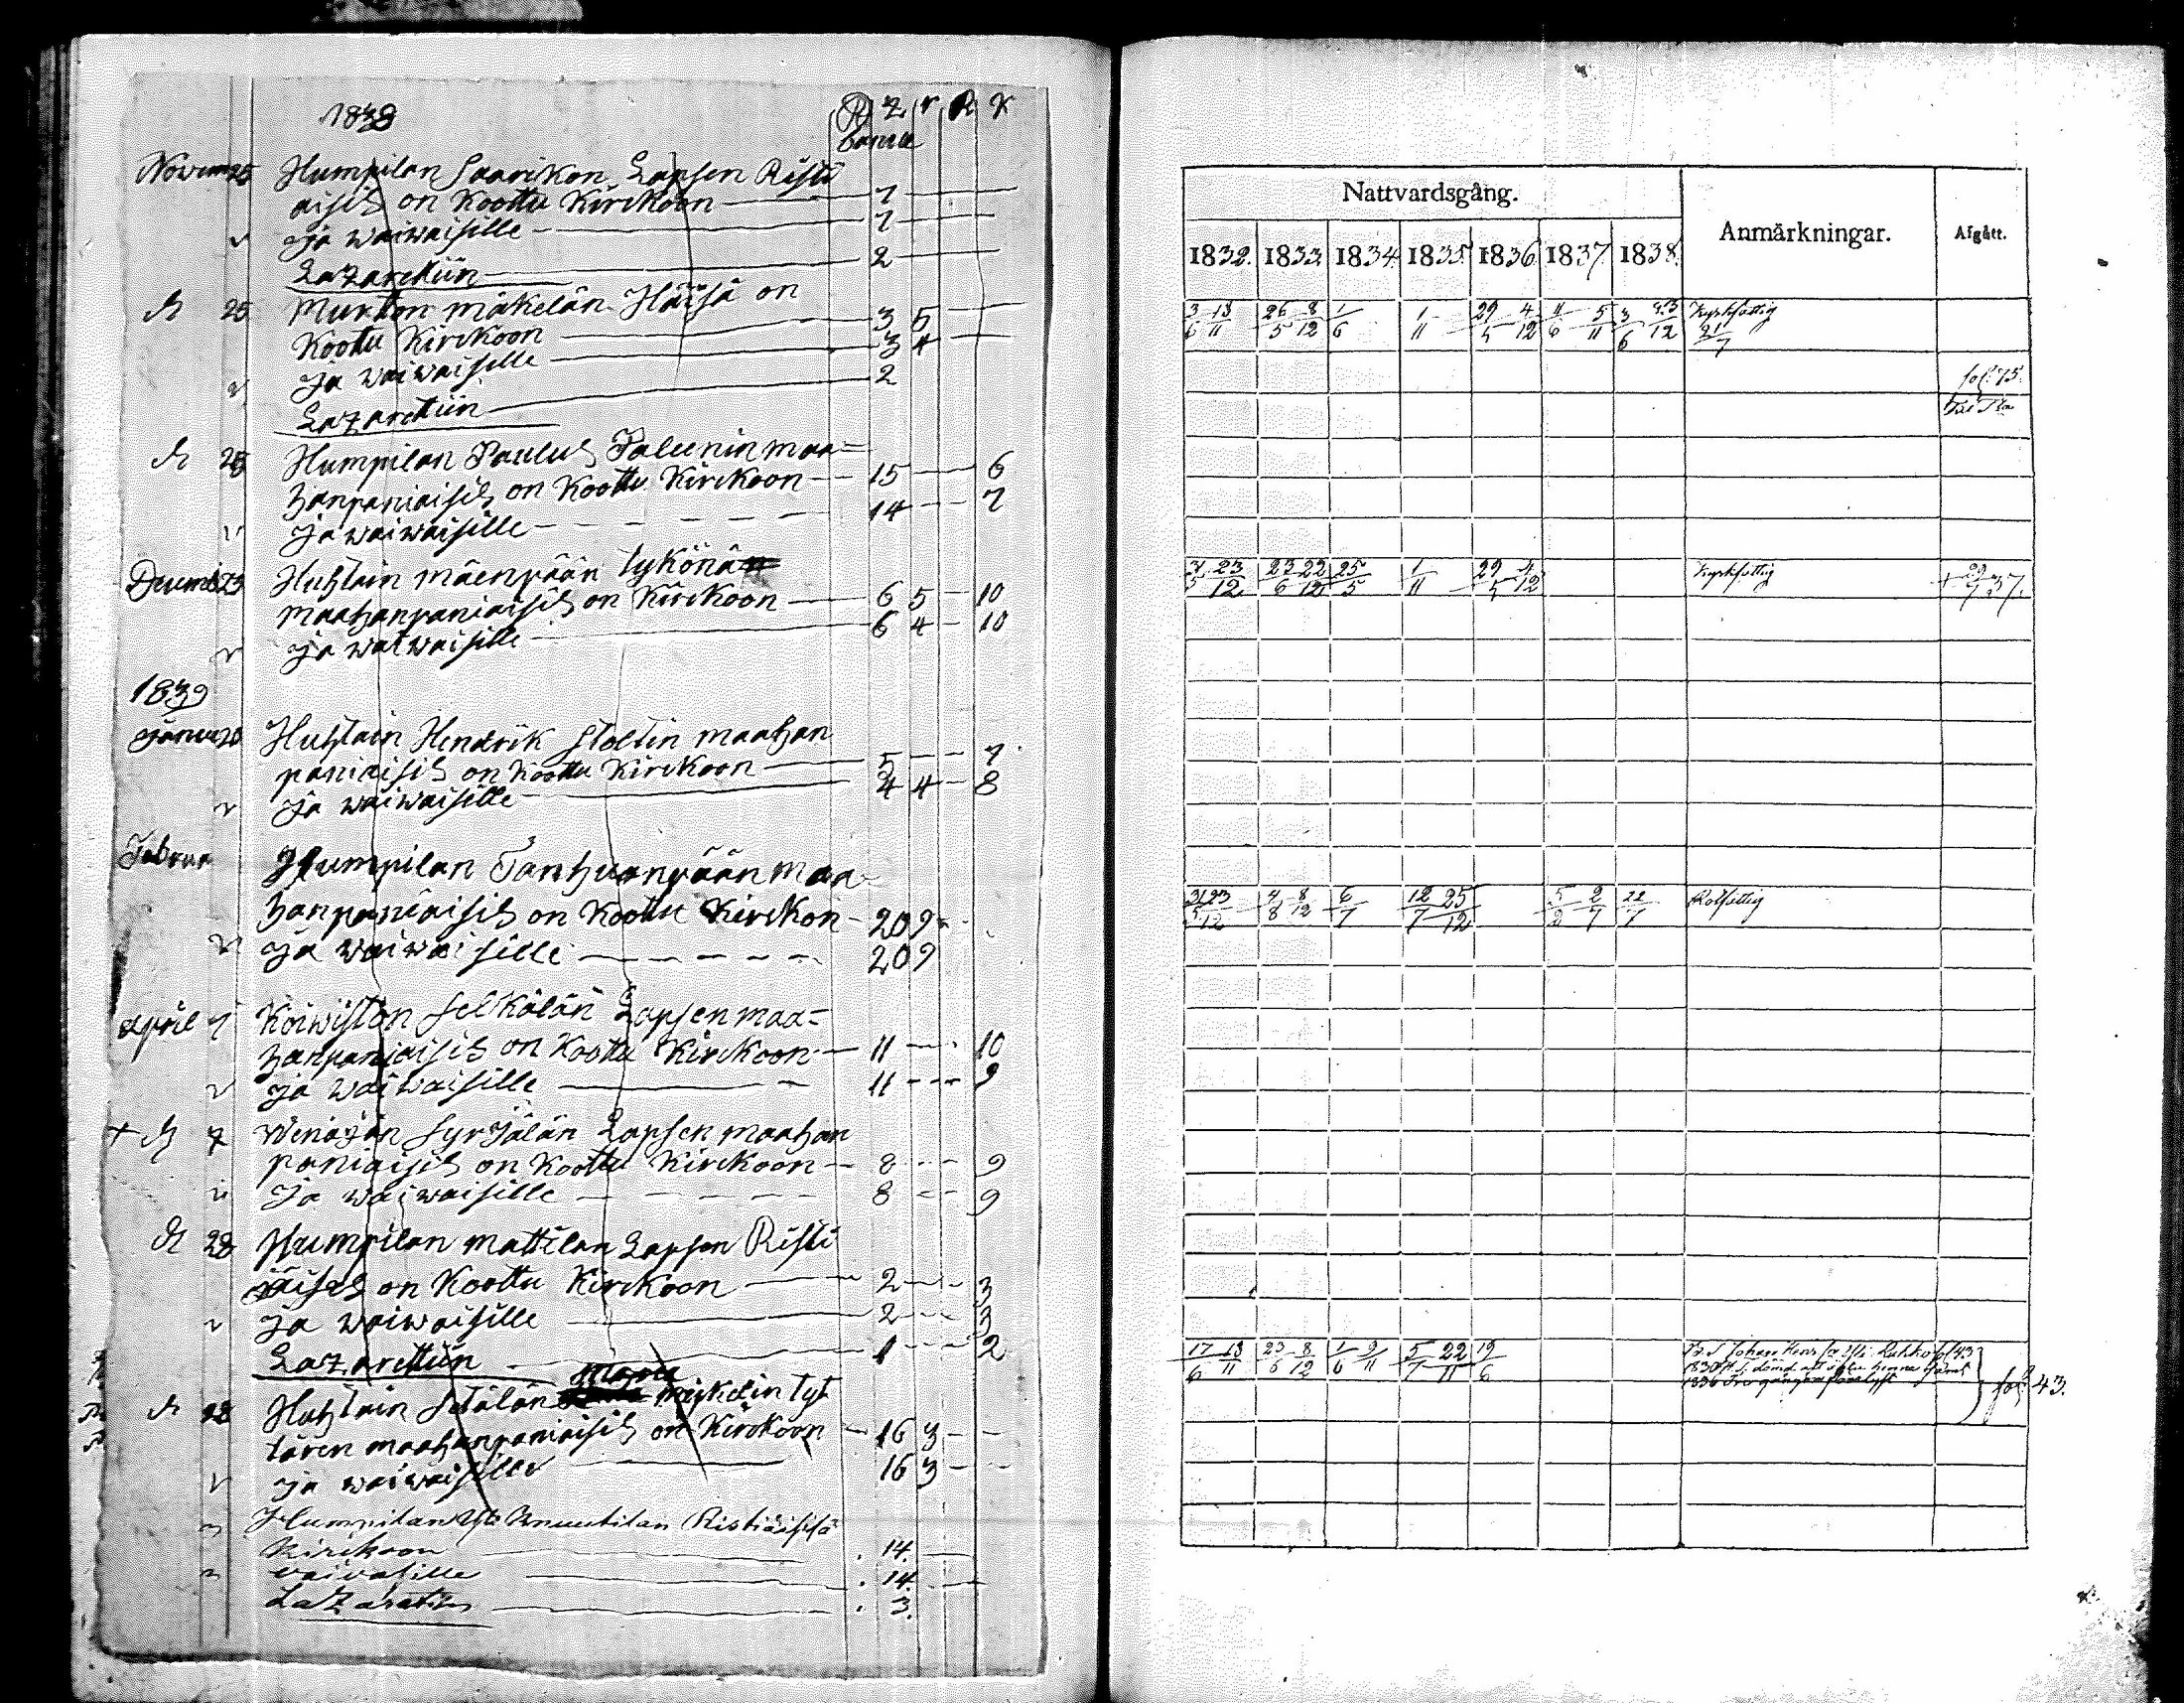 1838
R z r R K
Novem 25 Humpilan Saarikon Lapsen Risti
aisis on Koottu Kirckoon 7
v ja waiwaisille 7
Lazarettiin 2
25 Murron mäkelän Häisä on
Kootu Kirckoon 3 5
Ja waiwaisille 3 4
v Lazarettiin 2
25 Humpilan Paulus maa=
hanpaniaisis on Koottu Kirckoon 15 6
v Ja waiwaisille 14 7
Decemb 23 Huhtain mäenpään tykönä
maahanpaniaisis on Kirckoon 6 5 10
v ja waiwaisille 6 4 10
1839
Januar 20 Huhtain Hendrik Stoltin maahan
paniaisis on Koottu Kirckoon 5 7
v ja waiwaisille 4 4 8
Februa Humpilan Tanhuanpään maa
hanpaniaisis on Koottu Kirckon 20 9
v ja waiwaisille 20 9
April 7 Koiwiston Selkälän Lapsen maa=
hanpaniaisis on Koottu Kirckoon 11 10
v ja waiwaisille 11 9
+ 7 Wenäjän Syrjälän Lapsen maahan
paniaisis on Koottu Kirckoon 8 9
v Ja waiwaisille 8 9
28 Humpilan mattilan Lapsen Risti
äisis on Koottu Kirckoon 2 3
v Ja waiwaisille 2 3
Lazarettiin 1 2
28 Huhtain Setälän mickelin tyt
tären maahanpaniaisis on Kirckoon 16 3
v ja waiwaisille 16 3
Humpilan Ristiäisissä
Kirckoon 14.
vaivasille 14.
Lazaretin 3.
Nattvardsgång.
Anmärkningar.
Afgått.
1832. 1833. 1834. 1835. 1836. 1837. 1838.
3/6 18/11 26/5 8/12 1/6 1/11 29/5 4/12 11/6 5/11 3/6 23/12 Kyrkfattig
21/7
fol. 75.
31/5 23/12 23/6 22/12 25/5 1/11 29/5 4/12 Kyrkfattig + 29/7 37.
31/5 23/12 4/8 8/12 6/7 12/7 25/12 5/2 2/7 22/7 Rotfattig
17/6 18/11 23/6 8/12 1/6 9/11 5/7 22/11 19/6
fol. 43.